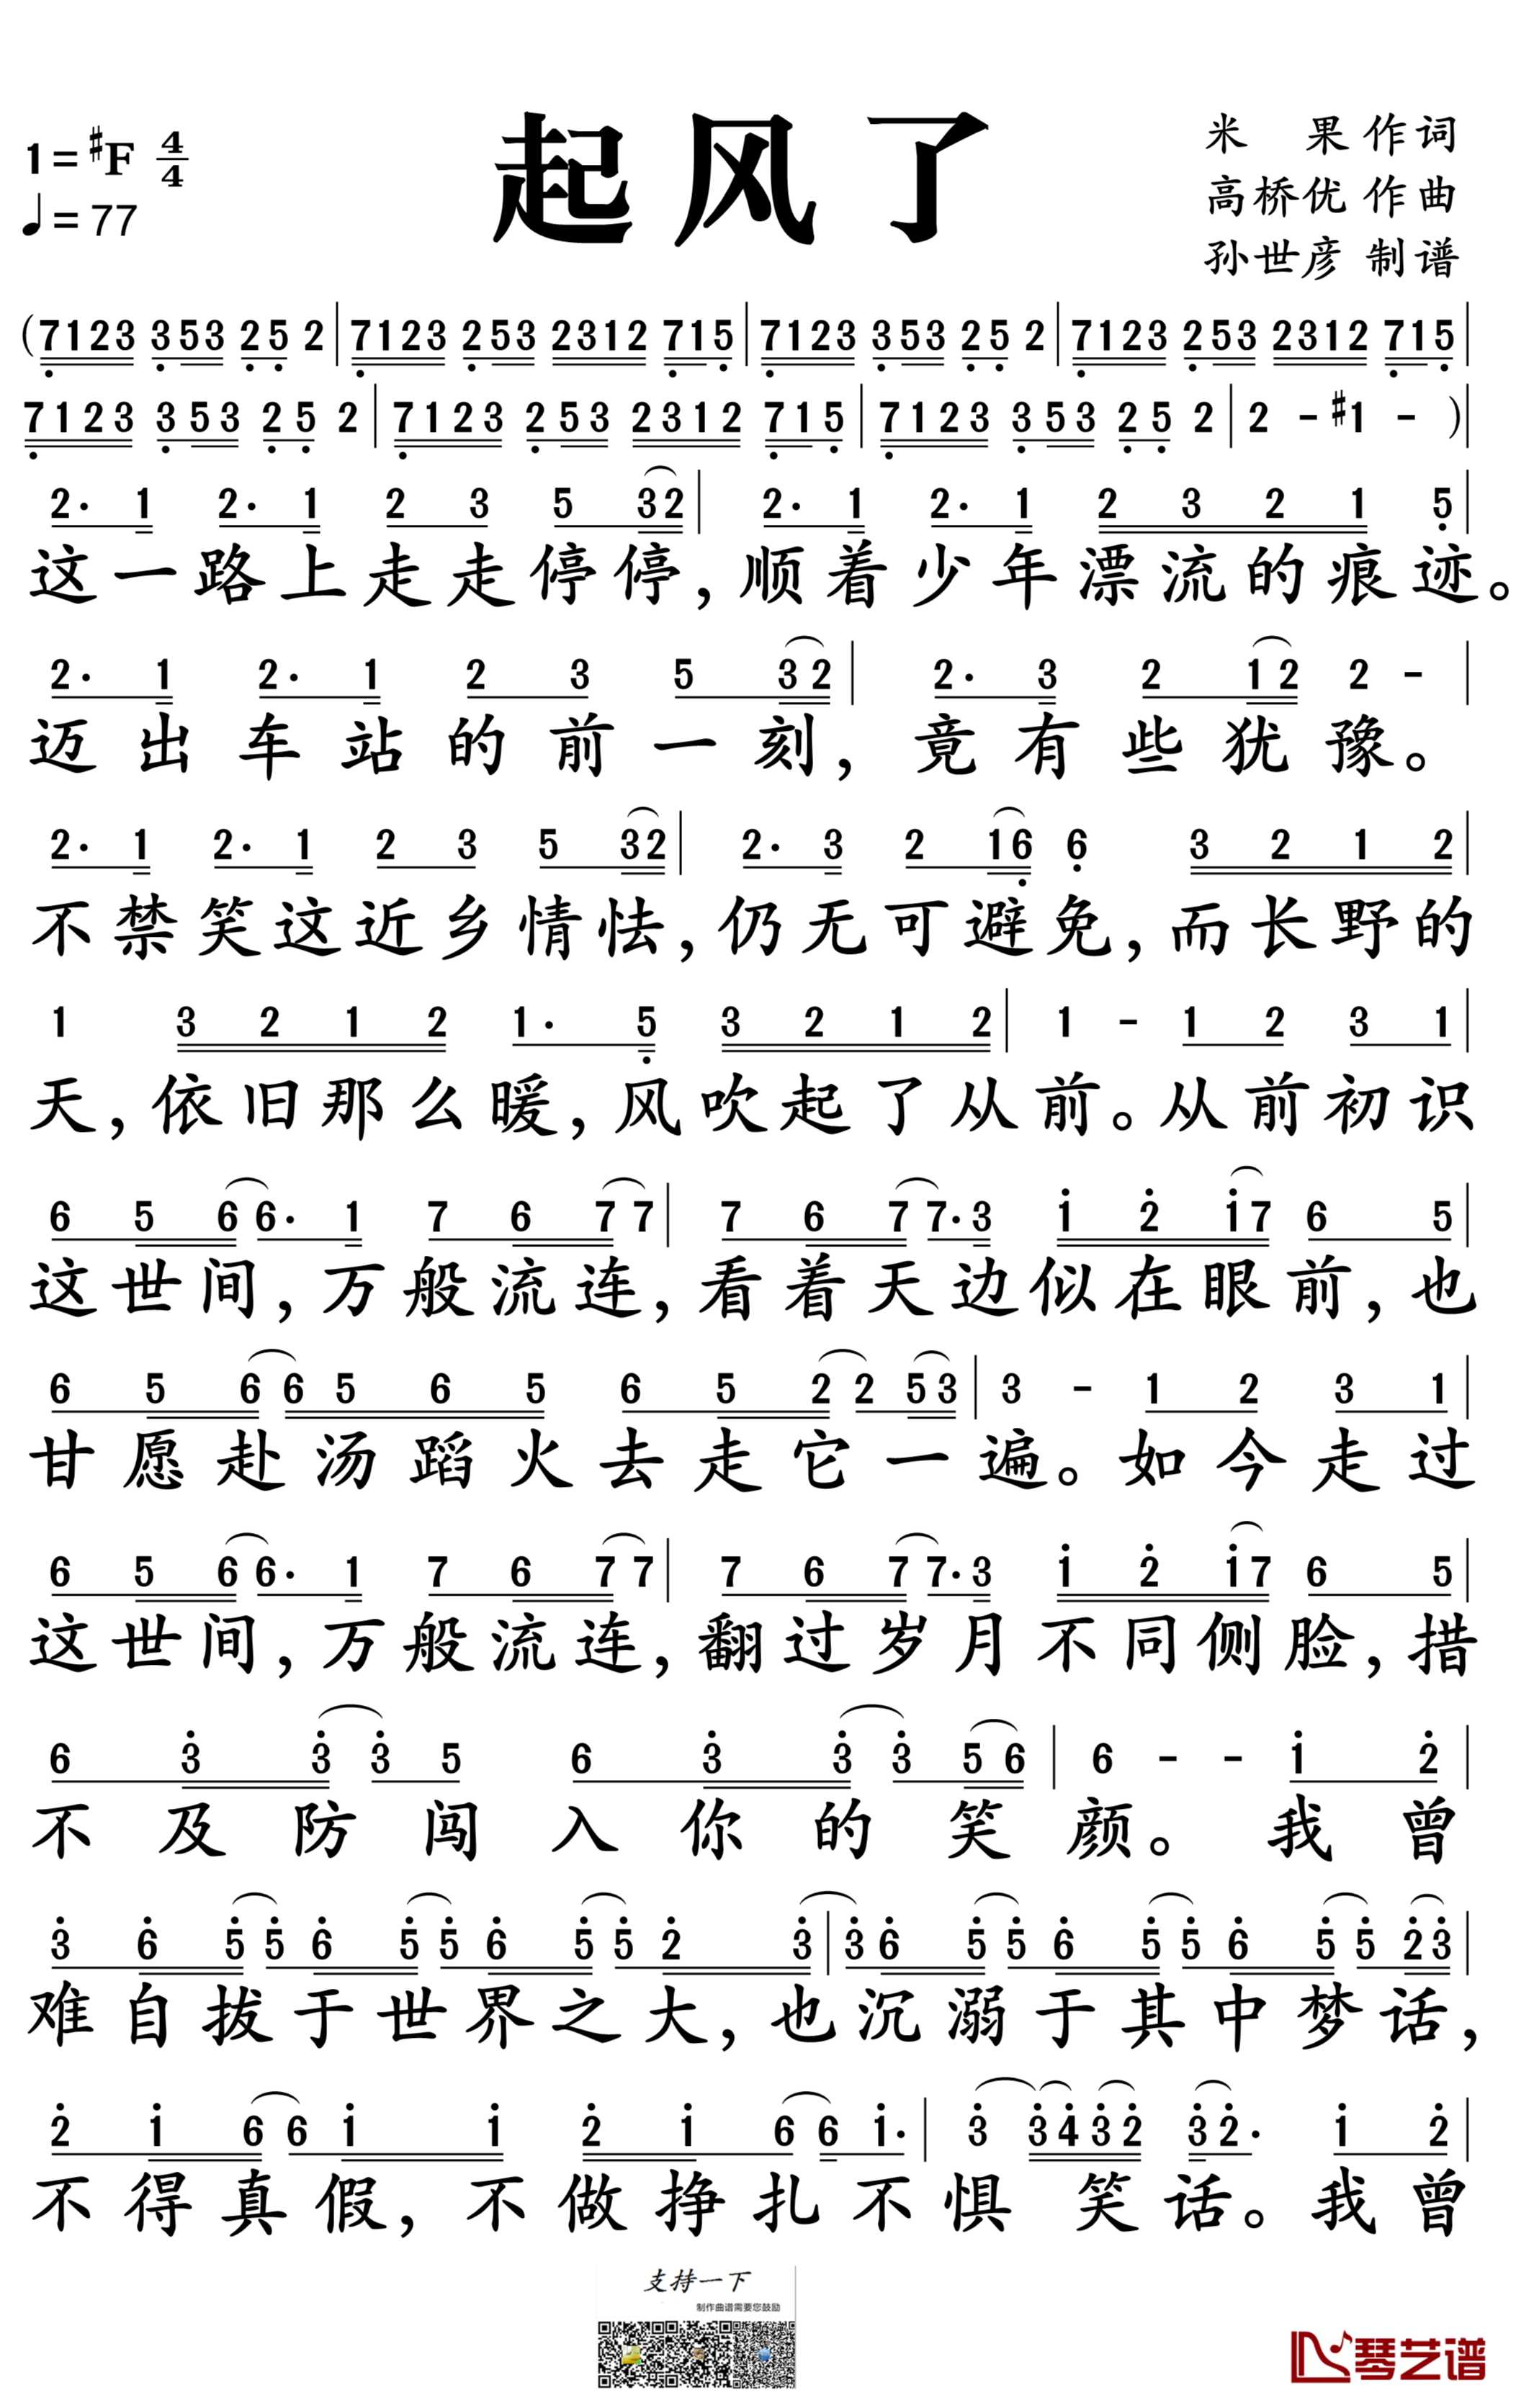 起风了
1=♯F 4/4
♩=77
米 果 作词
高桥优 作曲
孙世彦 制谱
(7123 353 25 2|7123 253 2312 715|7123 353 25 2|7123 253 2312 715|
7123 353 25 2|7123 253 2312 715|7123 353 25 2|2 - ♯1 - )|
2· 1 2· 1 2 3 5 32|2· 1 2· 1 2 3 2 1 5|
这一路上走走停停,顺着少年漂流的痕迹。
2· 1 2· 1 2 3 5 32|2· 3 2 12 2 -|
迈出车站的前一刻,竟有些犹豫。
2· 1 2· 1 2 3 5 32|2· 3 2 16 6 3 2 1 2|
不禁笑这近乡情怯,仍无可避免,而长野的
1 3 2 1 2 1· 5 3 2 1 2|1 - 1 2 3 1|
天,依旧那么暖,风吹起了从前。从前初识
6 5 6 6· 1 7 6 7 7|7 6 7 7· 3 1̇ 2̇ 1̇7 6 5|
这世间,万般流连,看着天边似在眼前,也
6 5 6 6 5 6 5 6 5 2 2 53|3 - 1 2 3 1|
甘愿赴汤蹈火去走它一遍。如今走过
6 5 6 6· 1 7 6 7 7|7 6 7 7· 3 1̇ 2̇ 1̇7 6 5|
这世间,万般流连,翻过岁月不同侧脸,措
6 3̇ 3̇ 3̇ 5 6 3̇ 3̇ 3̇ 5 6|6 - - 1̇ 2̇|
不及防闯入你的笑颜。我曾
3̇ 6̇ 5̇ 5̇ 6̇ 5̇ 5̇ 6̇ 5̇ 5̇ 2̇ 3̇|3̇ 6̇ 5̇ 5̇ 6̇ 5̇ 5̇ 6̇ 5̇ 5̇ 2̇3̇|
难自拔于世界之大,也沉溺于其中梦话,
2̇ 1̇ 6 6 1̇ 1̇ 2̇ 1̇ 6 6 1̇·|3̇ 3̇4̇3̇2̇ 3̇2̇· 1̇ 2̇|
不得真假,不做挣扎不惧笑话。我曾
支持一下
制作曲谱需要您鼓励
琴艺谱